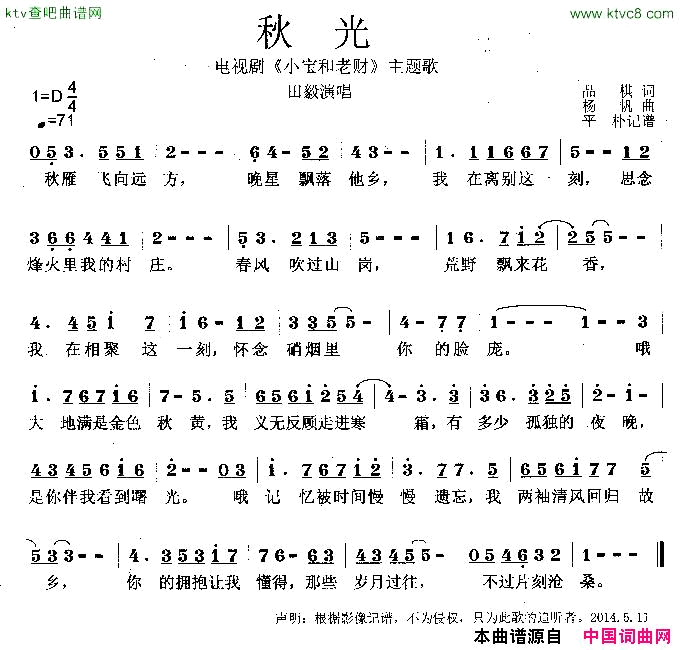 ktv查吧曲谱网
www.ktvc8.com
秋 光
电视剧《小宝和老财》主题歌
1=D 4/4
田毅演唱
品 棋 词
杨 帆 曲
♩=71
平 朴记谱
0 5 3. 5 5 1 | 2 - - - | 6 4 - 5 1 | 2 - - - | 1. 1 1 6 6 7 | 5 - - 1 2
秋雁 飞向远 方, 晚星 飘落 他乡, 我 在离别这一 刻, 思念
3 6 6 4 4 4 1 | 2 - - - | 5 3. 5 5 5 1 | 2 - - - | 1 6. 7 1 2 | 2 5 5 -
烽火里我的村 庄。 春风 吹过山 岗, 荒野 飘来花 香,
4. 4 5 1 7 | 1 6 - 1 2 | 3 3 5 5 - | 4 - 7 7 | 1 - - - | 1 - - 3
我 在相聚 这 一刻, 怀念 硝烟里 你 的脸 庞。 哦
1. 7 6 7 1 6 | 7 - 5. 5 | 6 5 6 1 2 5 4 | 4 - 3. 3 | 3 6. 3 2 5 | 2 - 1 -
大 地满是金色 秋 黄, 我 义无反顾走进寒 霜, 有 多少 孤独的 夜 晚,
4 3 4 5 6 1 6 | 2 - - 0 3 | 1. 7 6 7 1 6 | 5. 3 7 7. 5 | 6 5 6 1 7 7 5
是你伴我看到曙 光。 哦 记 忆被时间慢 慢 遗忘, 我 两袖清风回归 故
5 3 3 - - | 4. 3 5 3 1 7 | 7 6 - 6 3 | 4 3 4 5 5 - | 0 5 4 6 3 2 | 1 - - ‖
乡, 你 的拥抱让我 懂得, 那些 岁月过往, 不过片刻沧 桑。
声明: 根据影像记谱, 不为侵权, 只为此歌的追听者。2014.5.13
本曲谱源自 中国词曲网